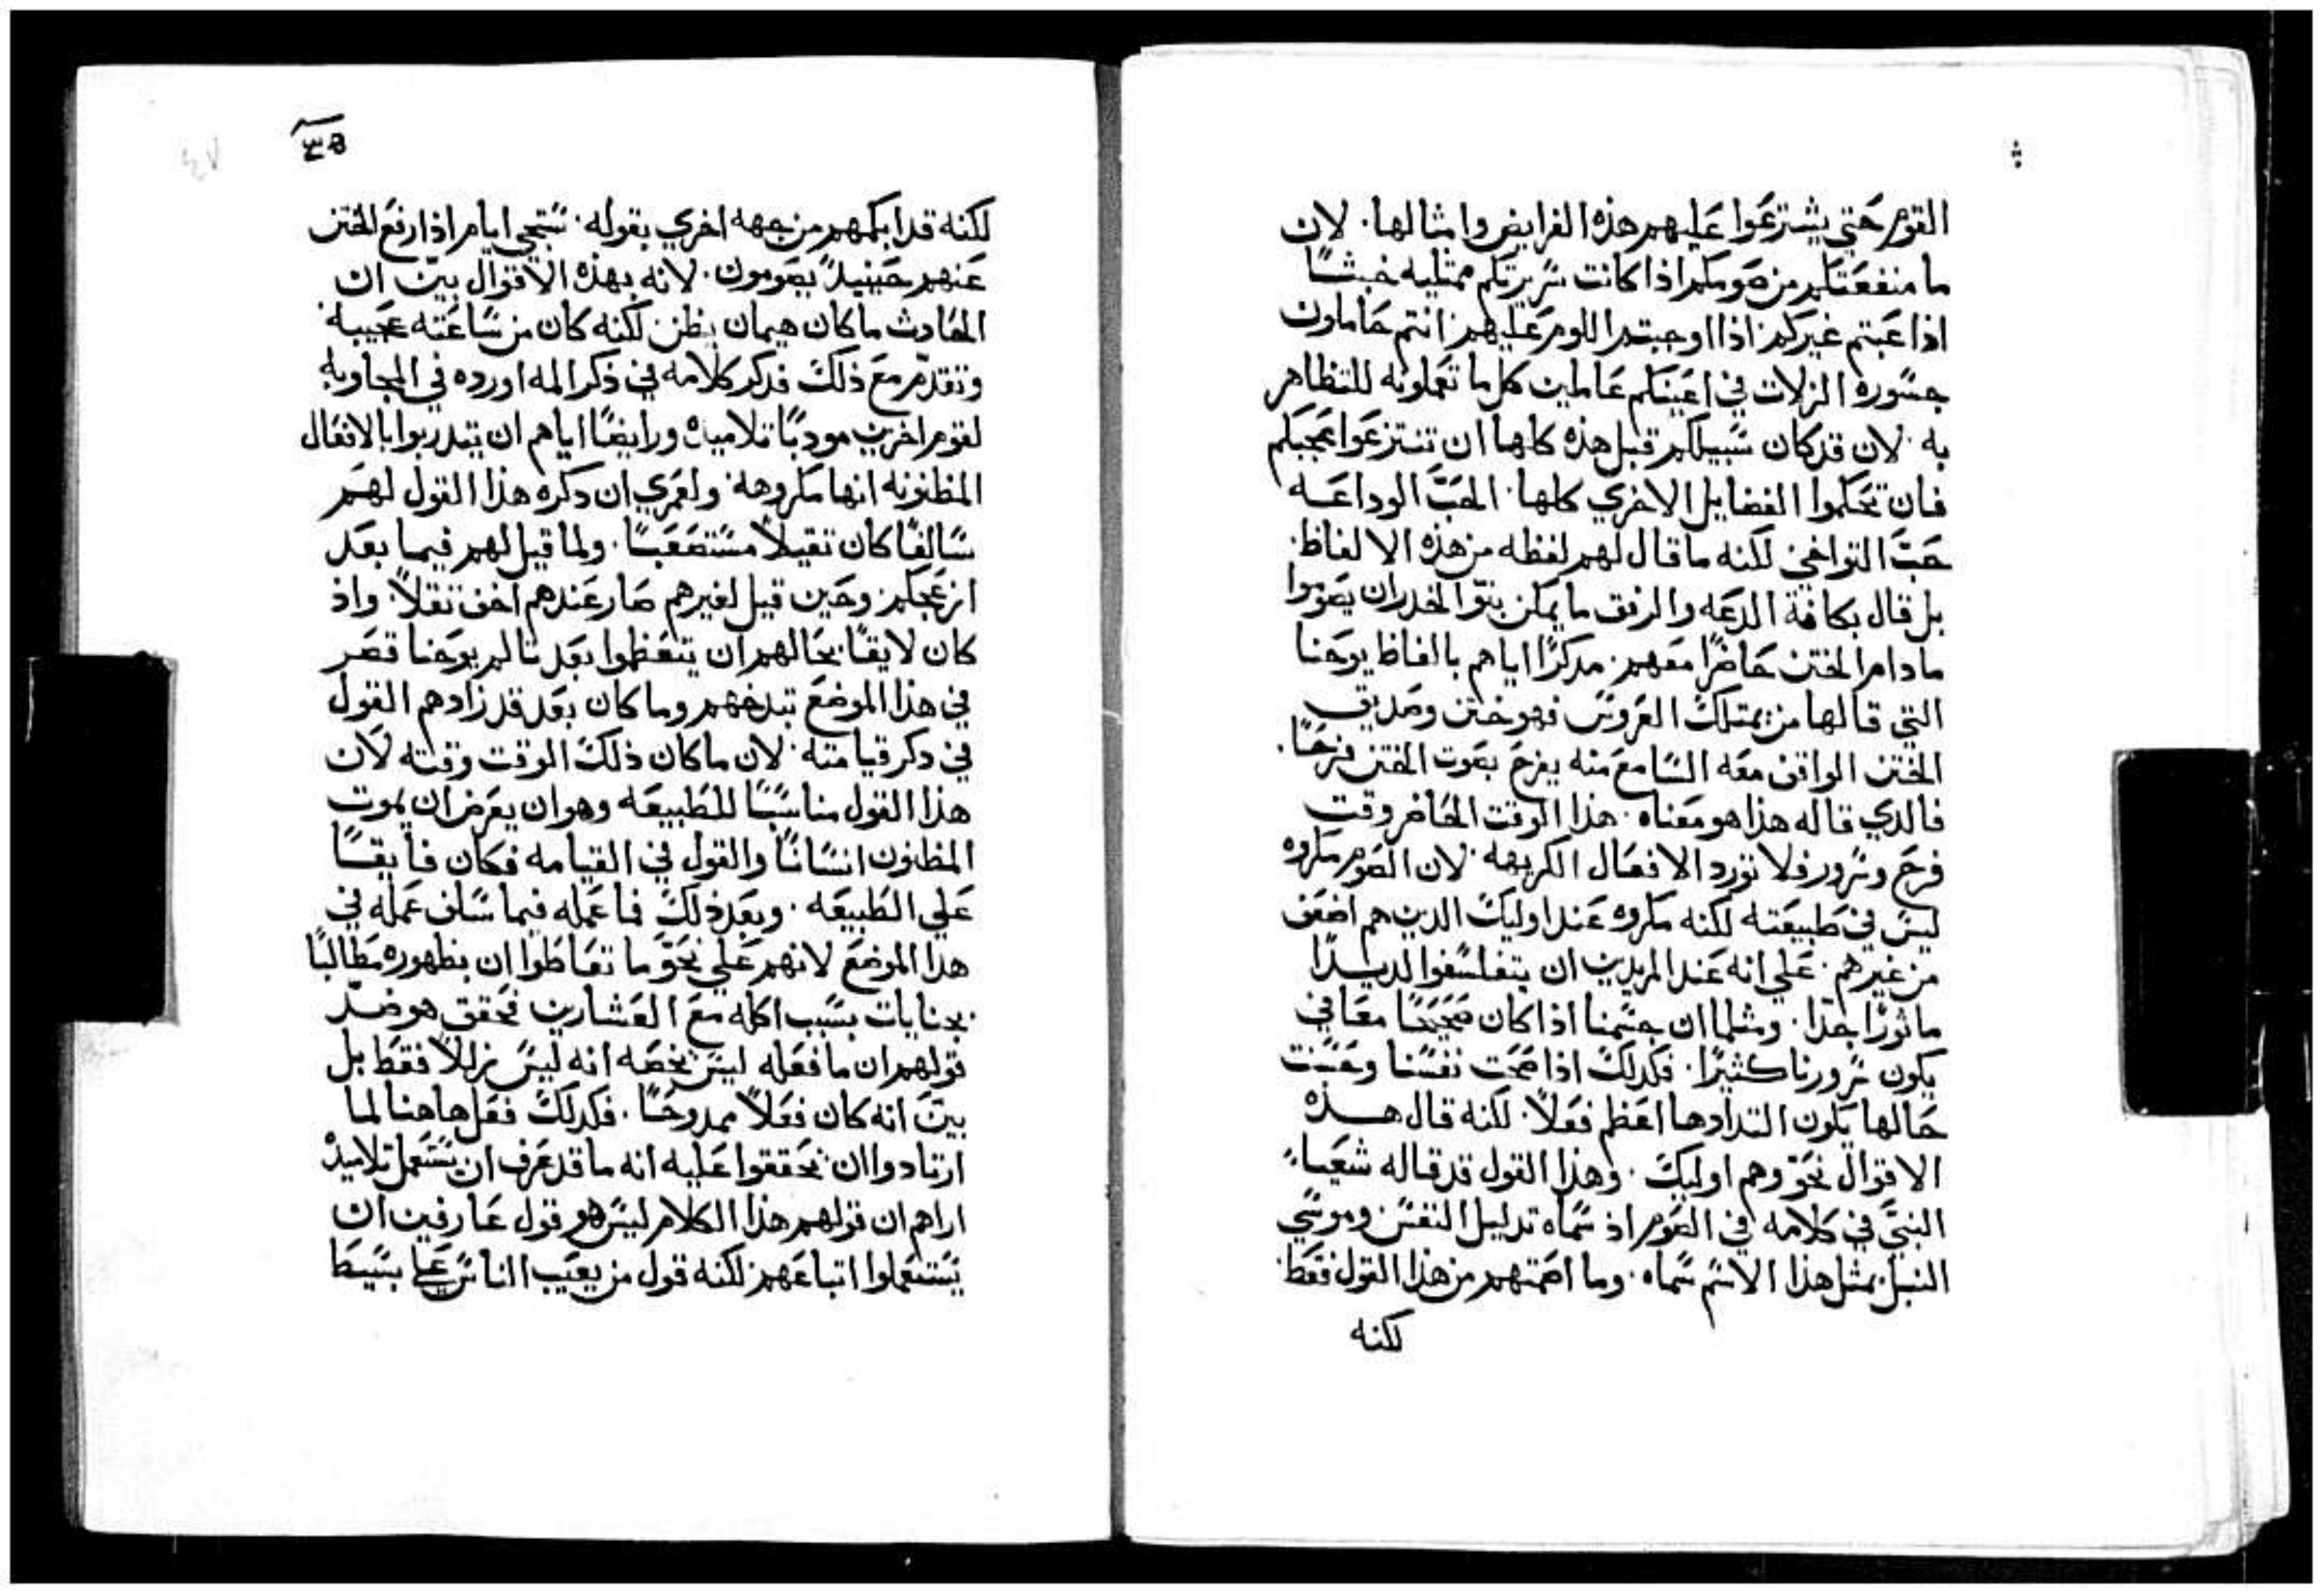 القوم حتي يشترعوا عليهم هذه الفرايض وامثالها. لان
ما منفعتكم من صومكم اذا كانت سريرتكم ممتليه خبثًا
اذا عبتم غيركم اذا اوجبتم اللوم عليهم انتم حاملون
جسورة الزلات في اعينكم عاملين كل ما تعملونه للتظاهر
به. لان قد كان سبيلكم قبل هذه كلها ان تنتزعوا عجبكم
فان تحكموا الفضايل الاخري كلها. الحب الوداعه
حب التواخي لكنه ما قال لهم لفظه من هذه الالفاظ.
بل قال بكافة الدعه والرفق ما يمكن بنو الخدر ان يصوموا
ما دام الختن حاضرًا معهم. مدكرًا اياهم بالفاظ يوحنا
التي قالها من يمتلك العروس فهو ختن وصديق
الختن الواقف معه السامع منه يفرح بصوت الختن فرحًا.
فالدي قاله هذا هو معناه. هذا الوقت الحاضر وقت
فرح وسرور فلا تورد الافعال الكريهه. لان الصوم مكروه
ليس في طبيعته لكنه مكروه عند اوليك الدين هم اضعف
من غيرهم. علي انه عند المريدين ان يتفلسفوا لديدًا
ماثورًا جدًا. ومثلما ان جسمنا اذا كان صحيحًا معافي
يكون سرورنا كثيرًا. فكدلك اذا صحت نفسنا وحسنت
حالها يكون التدادها اعظم فعلاً. لكنه قال هذه
الاقوال نحو وهم اوليك. وهذا القول قد قاله شعياء
النبي في كلامه في الصوم اذ سماه تدليل النفس وموسي
النبي بمثل هذا الاسم سماه. وما اصمتهم من هذا القول فقط.
لكنه
لكنه قد ابكمهم من جهه اخري بقوله. ستجي ايام اذا رفع الختن
عنهم حينيدً يصومون. لانه بهذه الاقوال بين ان
الحادث ما كان هيمان بطن لكنه كان من ساعته عجيبه.
وتقدم مع ذلك فدكر كلامه في ذكر المه اورده في المجاوبه
لقوم اخرين مودبًا تلاميده ورايضًا اياهم ان يتدربوا بالافعال
المظنونه انها مكروهه. ولعمري ان دكره هذا القول لهم
سالفًا كان تقيلاً مستصعبًا. ولما قيل لهم فيما بعد
ازعجكم وحين قيل لغيرهم صار عندهم اخف تقلاً. واذ
كان لايقًا بحالهم ان يتعظموا بعد تالم يوحنا قصر
في هذا الموضع تبدخهم وما كان بعد قد زادهم القول
في دكر قيامته. لان ما كان ذلك الوقت وقته لان
هذا القول مناسبًا للطبيعه وهو ان يعرض ان يموت
المظنون انسانًا والقول في القيامه فكان فايقًا
علي الطبيعه. وبعد ذلك فما عمله فيما سلف عمله في
هدا الموضع لانهم علي نحو ما تعاطوا ان يظهوره مطالبًا
بجنايات بسبب اكله مع العشارين فحقق هو ضد
قولهم ان ما فعله ليس يخصه انه ليس زللاً فقط بل
بين انه كان فعلاً ممدوحًا. فكدلك فعل هاهنا لما
ارتادوا ان يحققوا عليه انه ما قد عرف ان يستعمل تلاميده
اراهم ان قولهم هذا الكلام ليس هو قول عارفين ان
يستعملوا اتباعهم لكنه قول من يعيب الناس علي بسيط